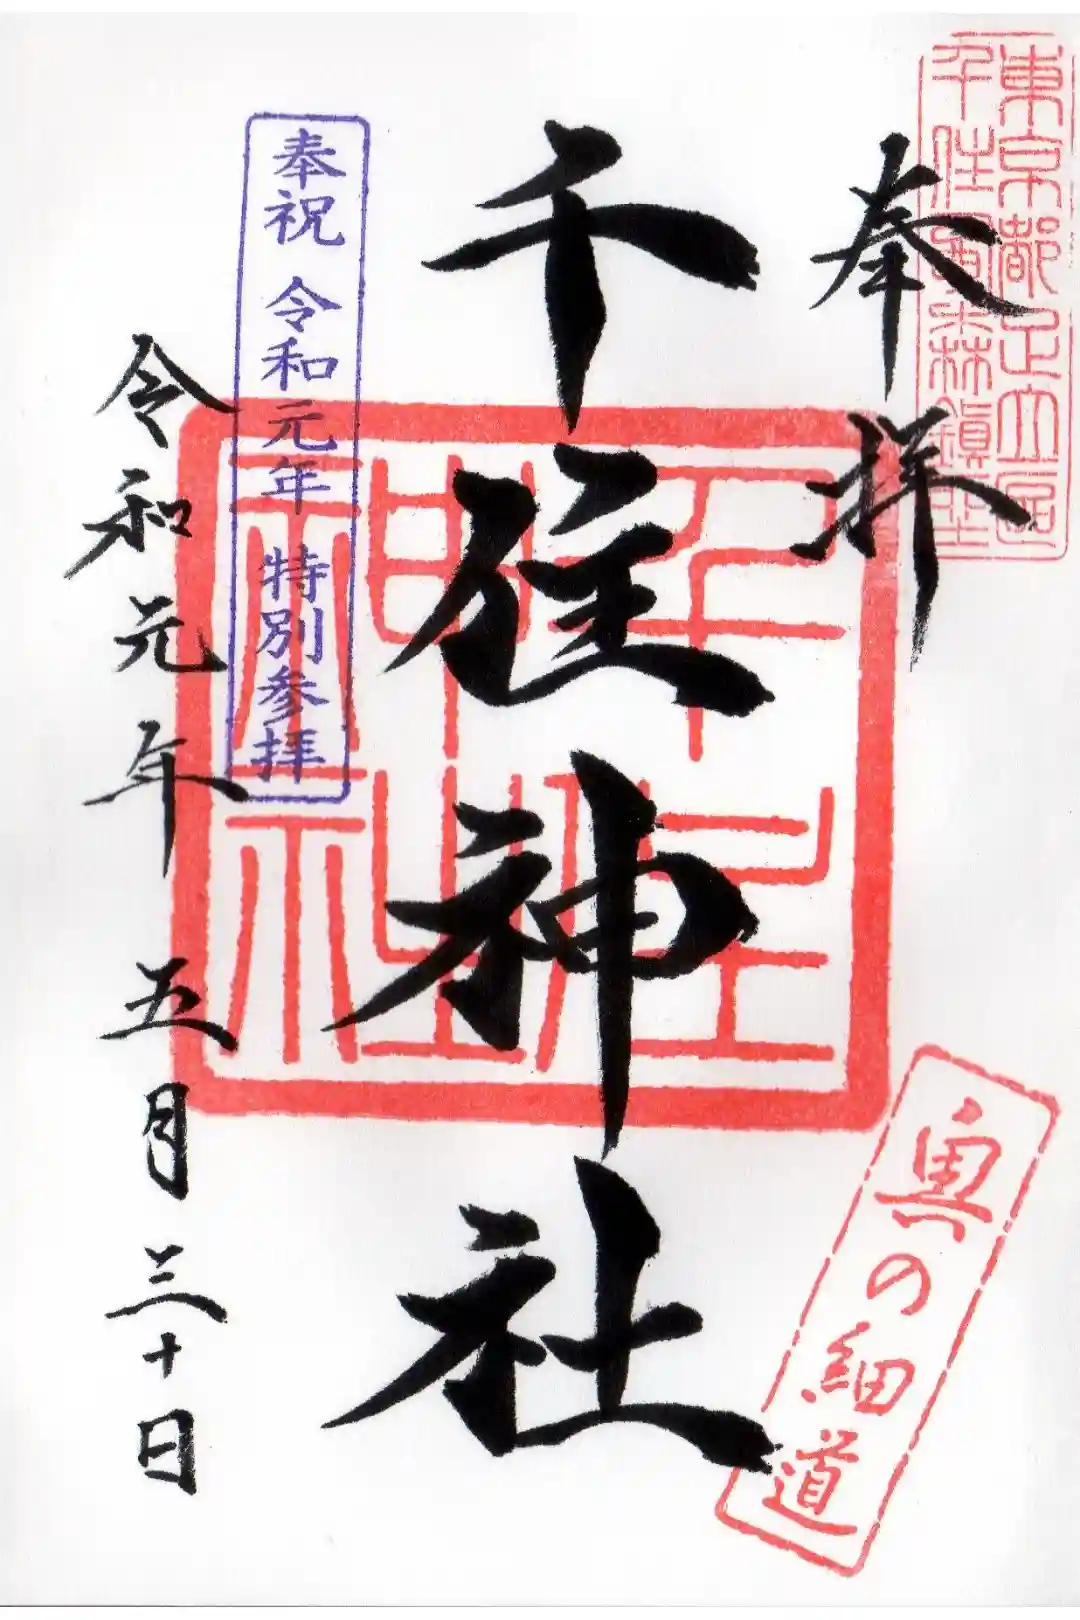 東京都足立区
千住西森鎮座
奉拝
千住神社
千住神社
奉祝 令和元年 特別参拝
令和元年 五月三十日
奥の細道